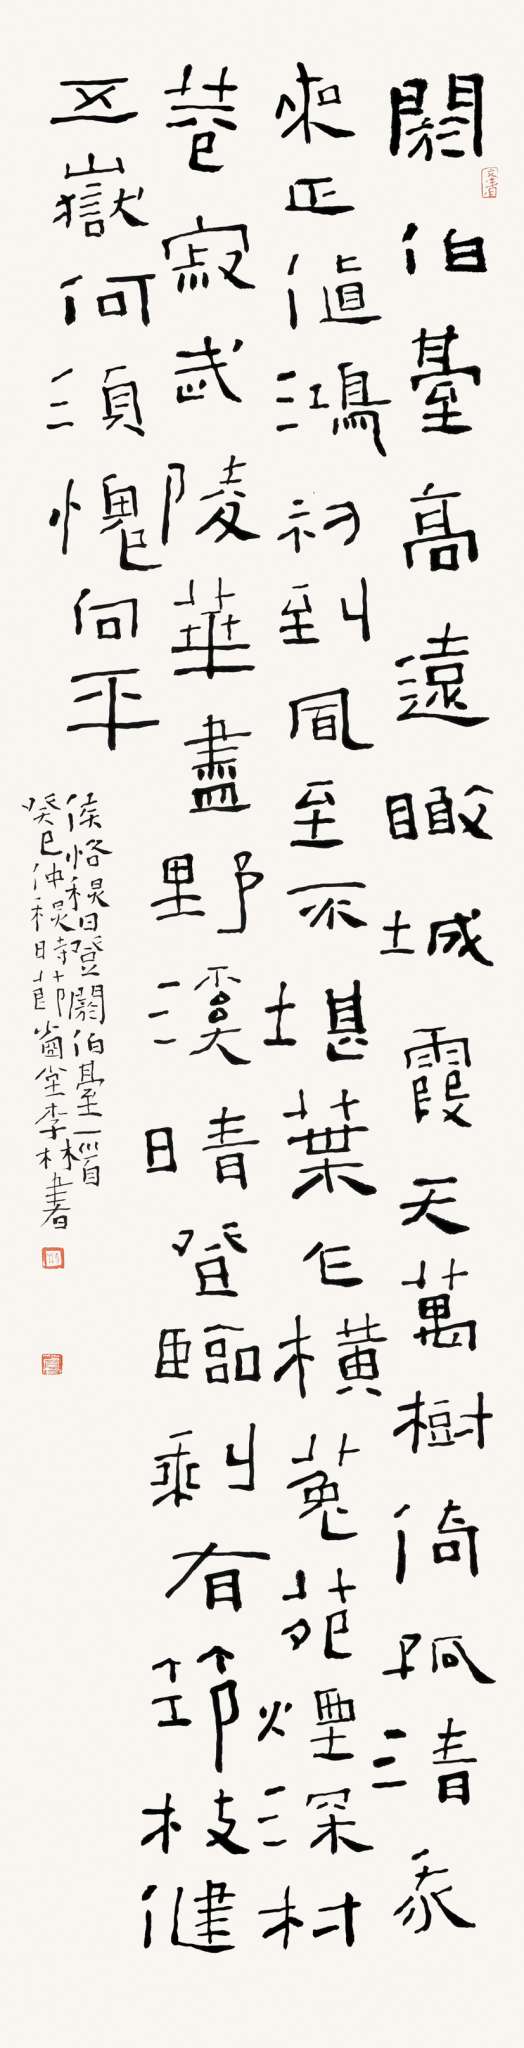 閼伯臺高遠瞰城霞天萬樹倚孤清我
來正值鴻初到風至不堪葉乍橫菟苑煙深村
巷寂武陵華盡野溪晴登臨剩有筇枝健
五嶽何須愧向平
侯恪秋日登閼伯臺一首
癸巳仲秋時節嗇堂李林書